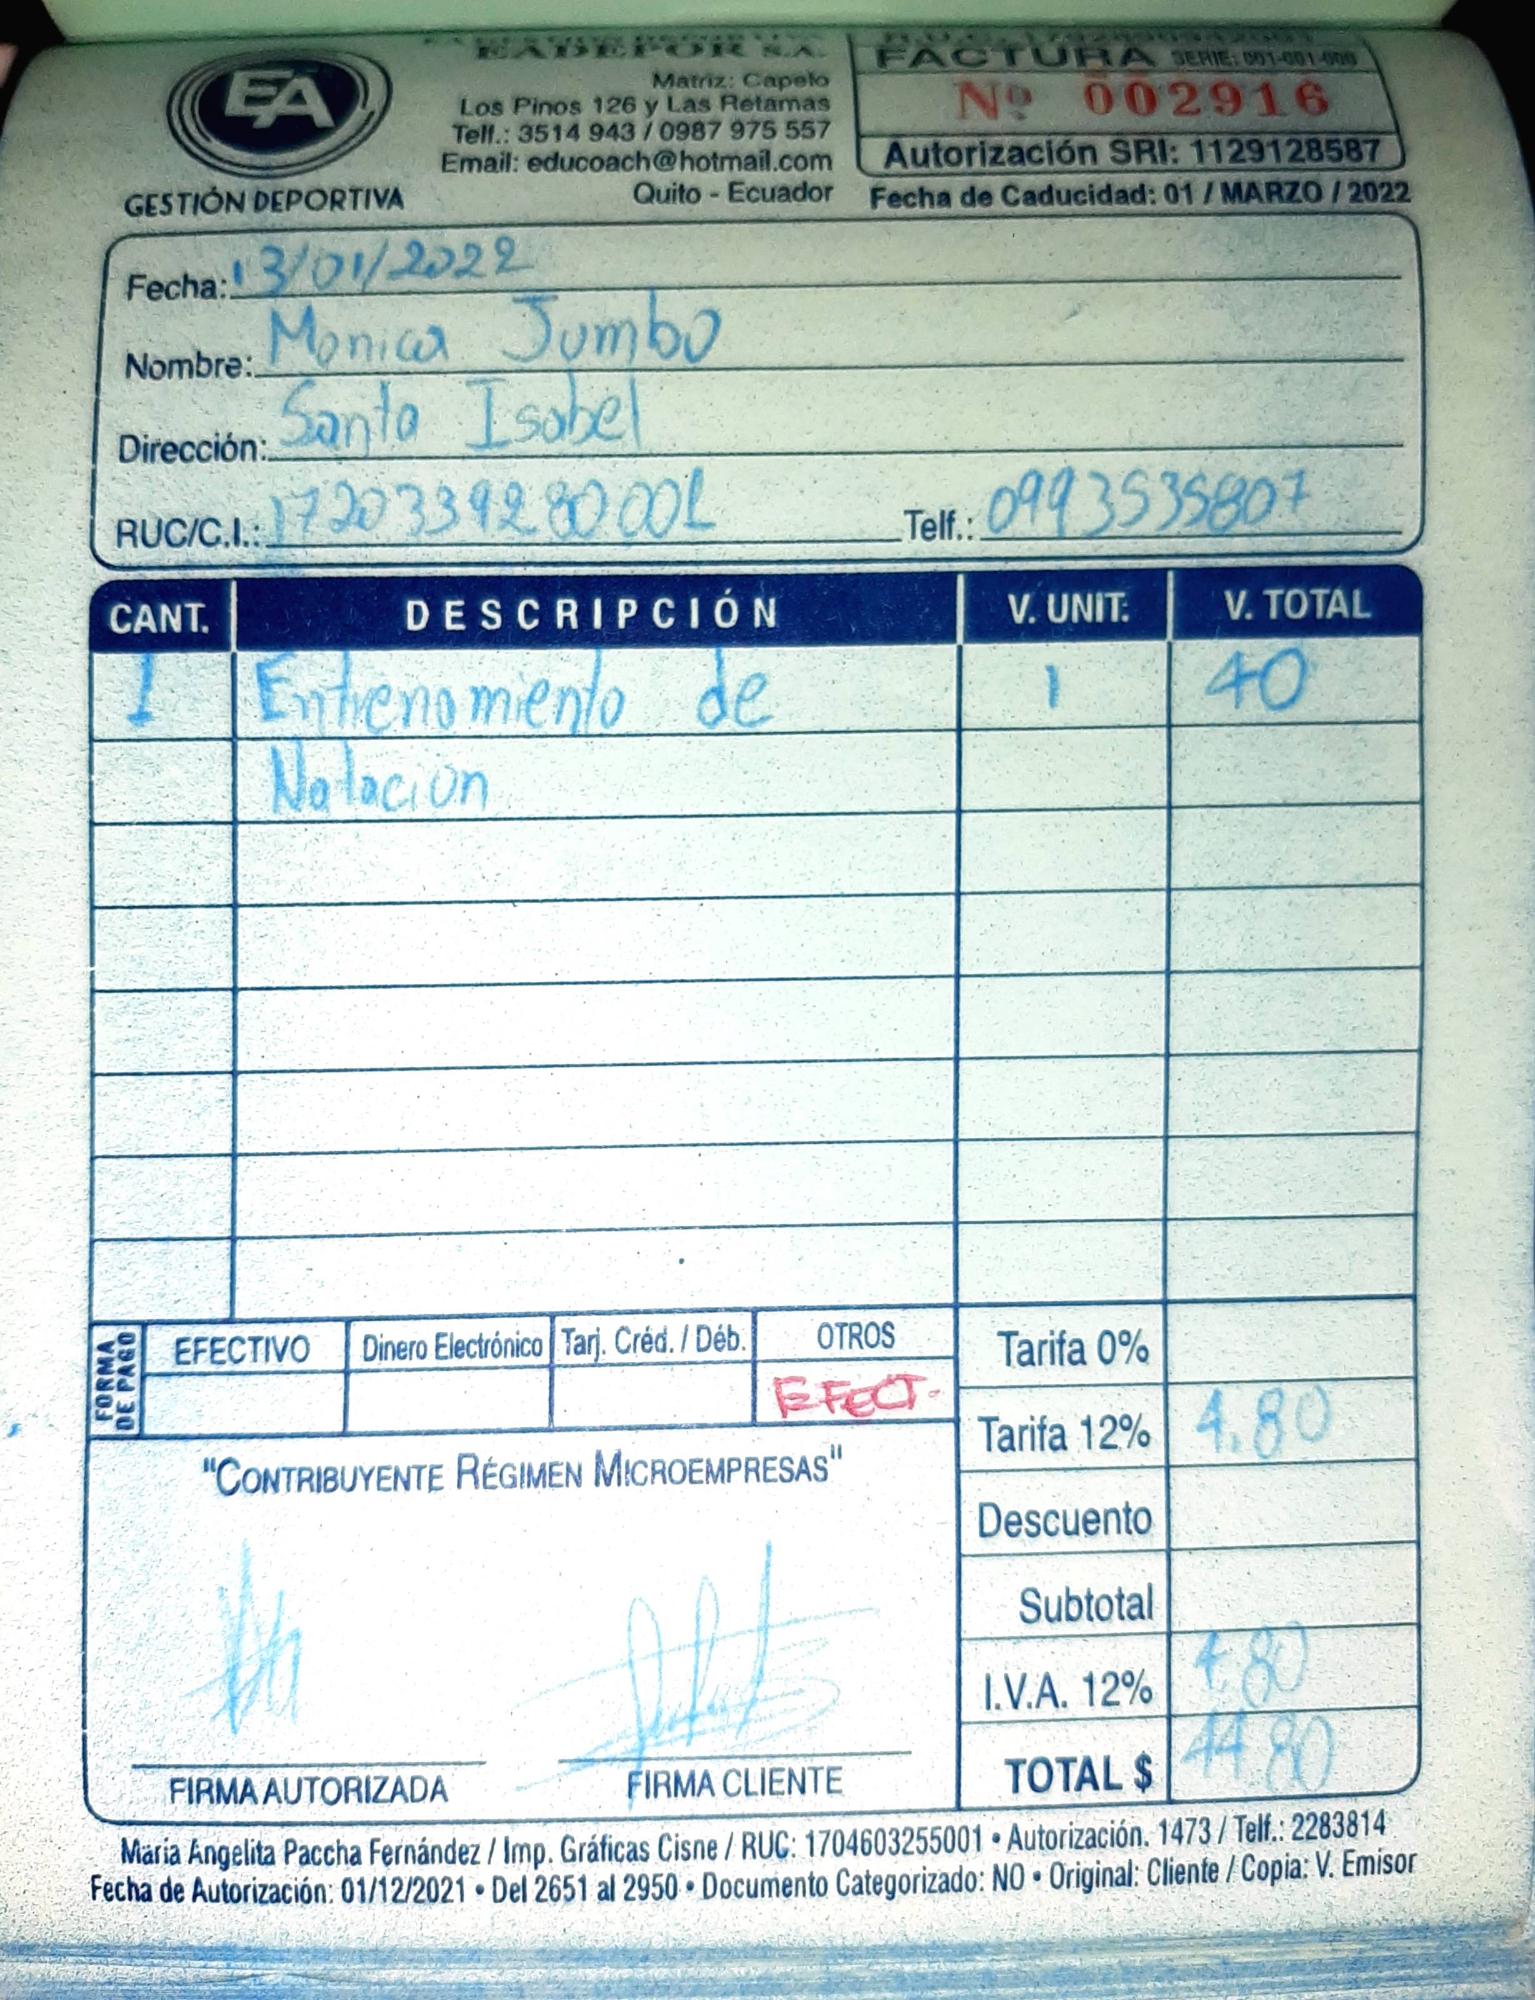 EADEPOR S.A.
EA
GESTIÓN DEPORTIVA
Matriz: Capelo
Los Pinos 126 y Las Retamas
Telf.: 3514 943 / 0987 975 557
Email: educoach@hotmail.com
Quito - Ecuador
FACTURA SERIE: 001-001-000
Nº 002916
Autorización SRI: 1129128587
Fecha de Caducidad: 01 / MARZO / 2022
Fecha: 13/01/2022
Nombre: Monica Jumbo
Dirección: Santa Isabel
RUC/C.I.: 1720339280001 Telf.: 0993535807
CANT. DESCRIPCIÓN V. UNIT. V. TOTAL
1 Entrenamiento de 1 40
Natacion
FORMA DE PAGO
EFECTIVO Dinero Electrónico Tarj. Créd. / Déb. OTROS
EFECT.
Tarifa 0%
Tarifa 12% 4.80
Descuento
Subtotal
I.V.A. 12% 4.80
TOTAL $ 44.80
"CONTRIBUYENTE RÉGIMEN MICROEMPRESAS"
FIRMA AUTORIZADA FIRMA CLIENTE
María Angelita Paccha Fernández / Imp. Gráficas Cisne / RUC: 1704603255001 • Autorización. 1473 / Telf.: 2283814
Fecha de Autorización: 01/12/2021 • Del 2651 al 2950 • Documento Categorizado: NO • Original: Cliente / Copia: V. Emisor